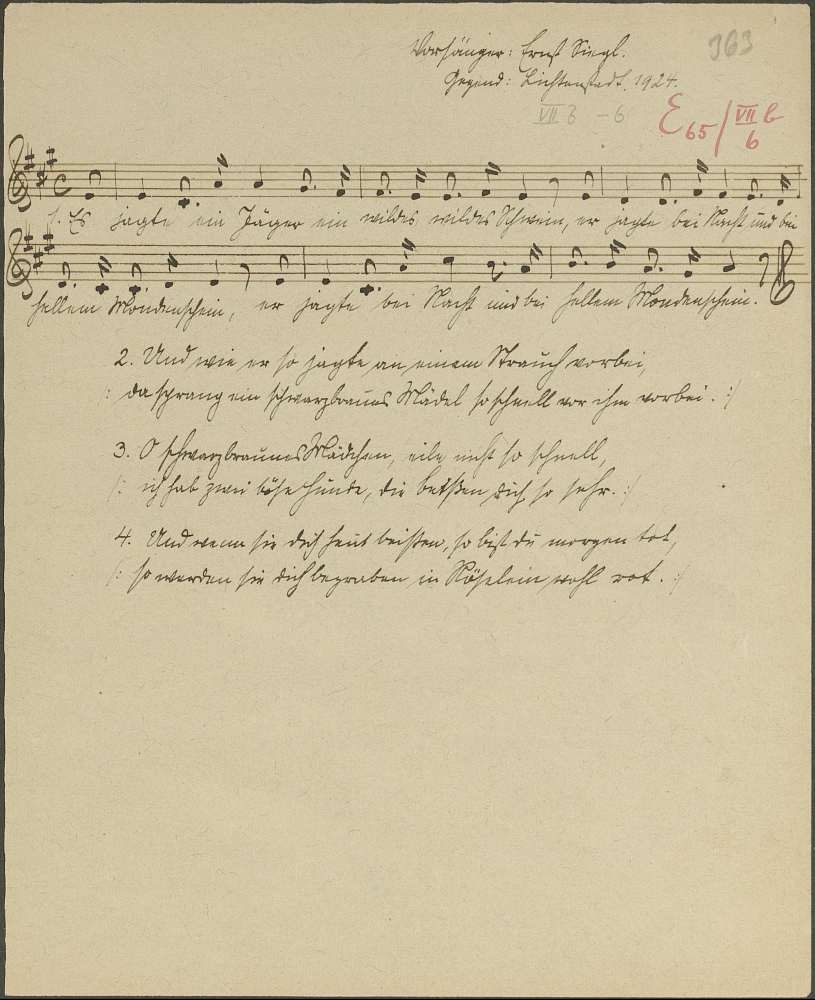 Vorsänger: Ernst Siegl.
363
Gegend: Lichtenstadt. 1924.
VII B - 6
E 65/VII b 6
1. Es jagte ein Jäger ein wildes, wildes Schwein, er jagte bei Nacht und bei
hellem Mondenschein, er jagte bei Nacht und bei hellem Mondenschein.
2. Und wie er so jagte an einem Strauch vorbei,
/: da sprang ein schwarzbraunes Mädel so schnell vor ihm vorbei. :/
3. O schwarzbraunes Mädchen, eile nicht so schnell,
/: ich hab zwei böse Hunde, die beißen dich so sehr. :/
4. Und wenn sie dich heut beißen, so bist du morgen tot,
/: so werden sie dich begraben in Röselein wohl rot. :/